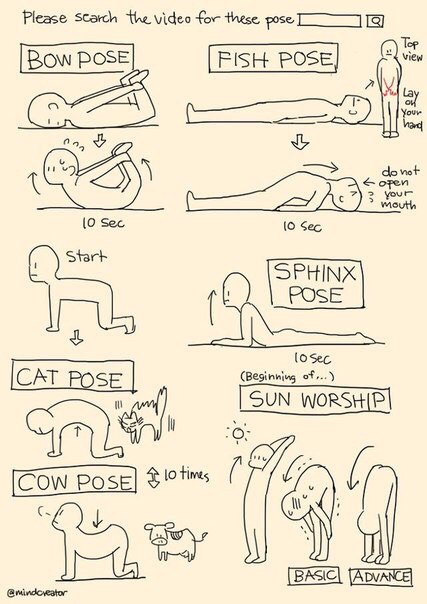 Please search the video for these pose
BOW POSE
10 Sec
FISH POSE
Top
view
Lay
on
your
hand
do not
open
your
mouth
??
10 Sec
Start
CAT POSE
COW POSE
10 times
SPHINX
POSE
10 Sec
(Beginning of...)
SUN WORSHIP
BASIC
ADVANCE
@mindcreator